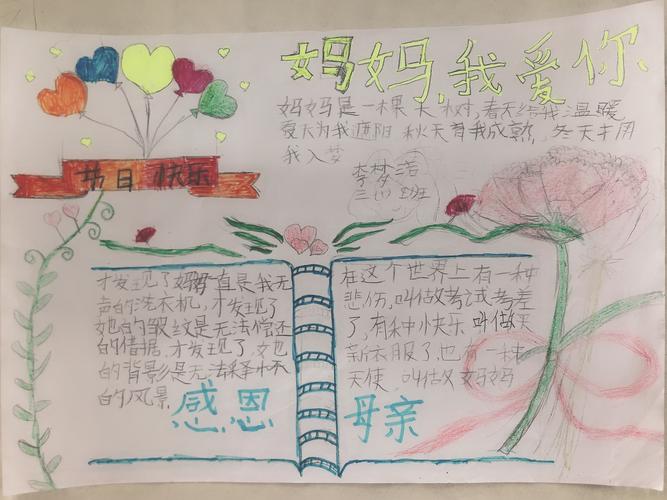 妈妈,我爱你
妈妈是一棵大树,春天给我温暖
夏天为我遮阳 秋天育我成熟,冬天
我入梦
李梦
三(1)班
节日快乐
才发现了妈妈直是我无
声的洗衣机,才发现了
她的皱纹是无法偿还
的借据,才发现了,她
的背影是无法
的风景
感恩
在这个世界上有一种
悲伤,叫做考试考差
了,有种快乐 叫做
新衣服了,也有一种
天使,叫做妈妈
母亲